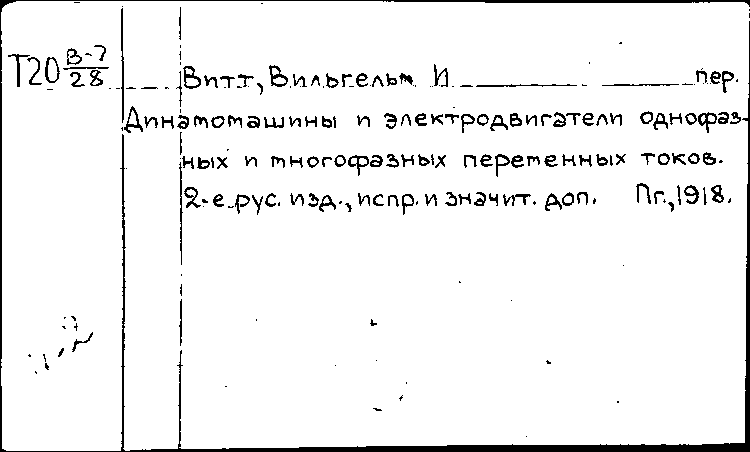 Т20 В-7/28
Витт, Вильгельм И пер.
Динамомашины и электродвигатели однофаз-
ных и многофазных переменных токов.
2-е рус. изд., испр. и значит. доп. Пг., 1918.